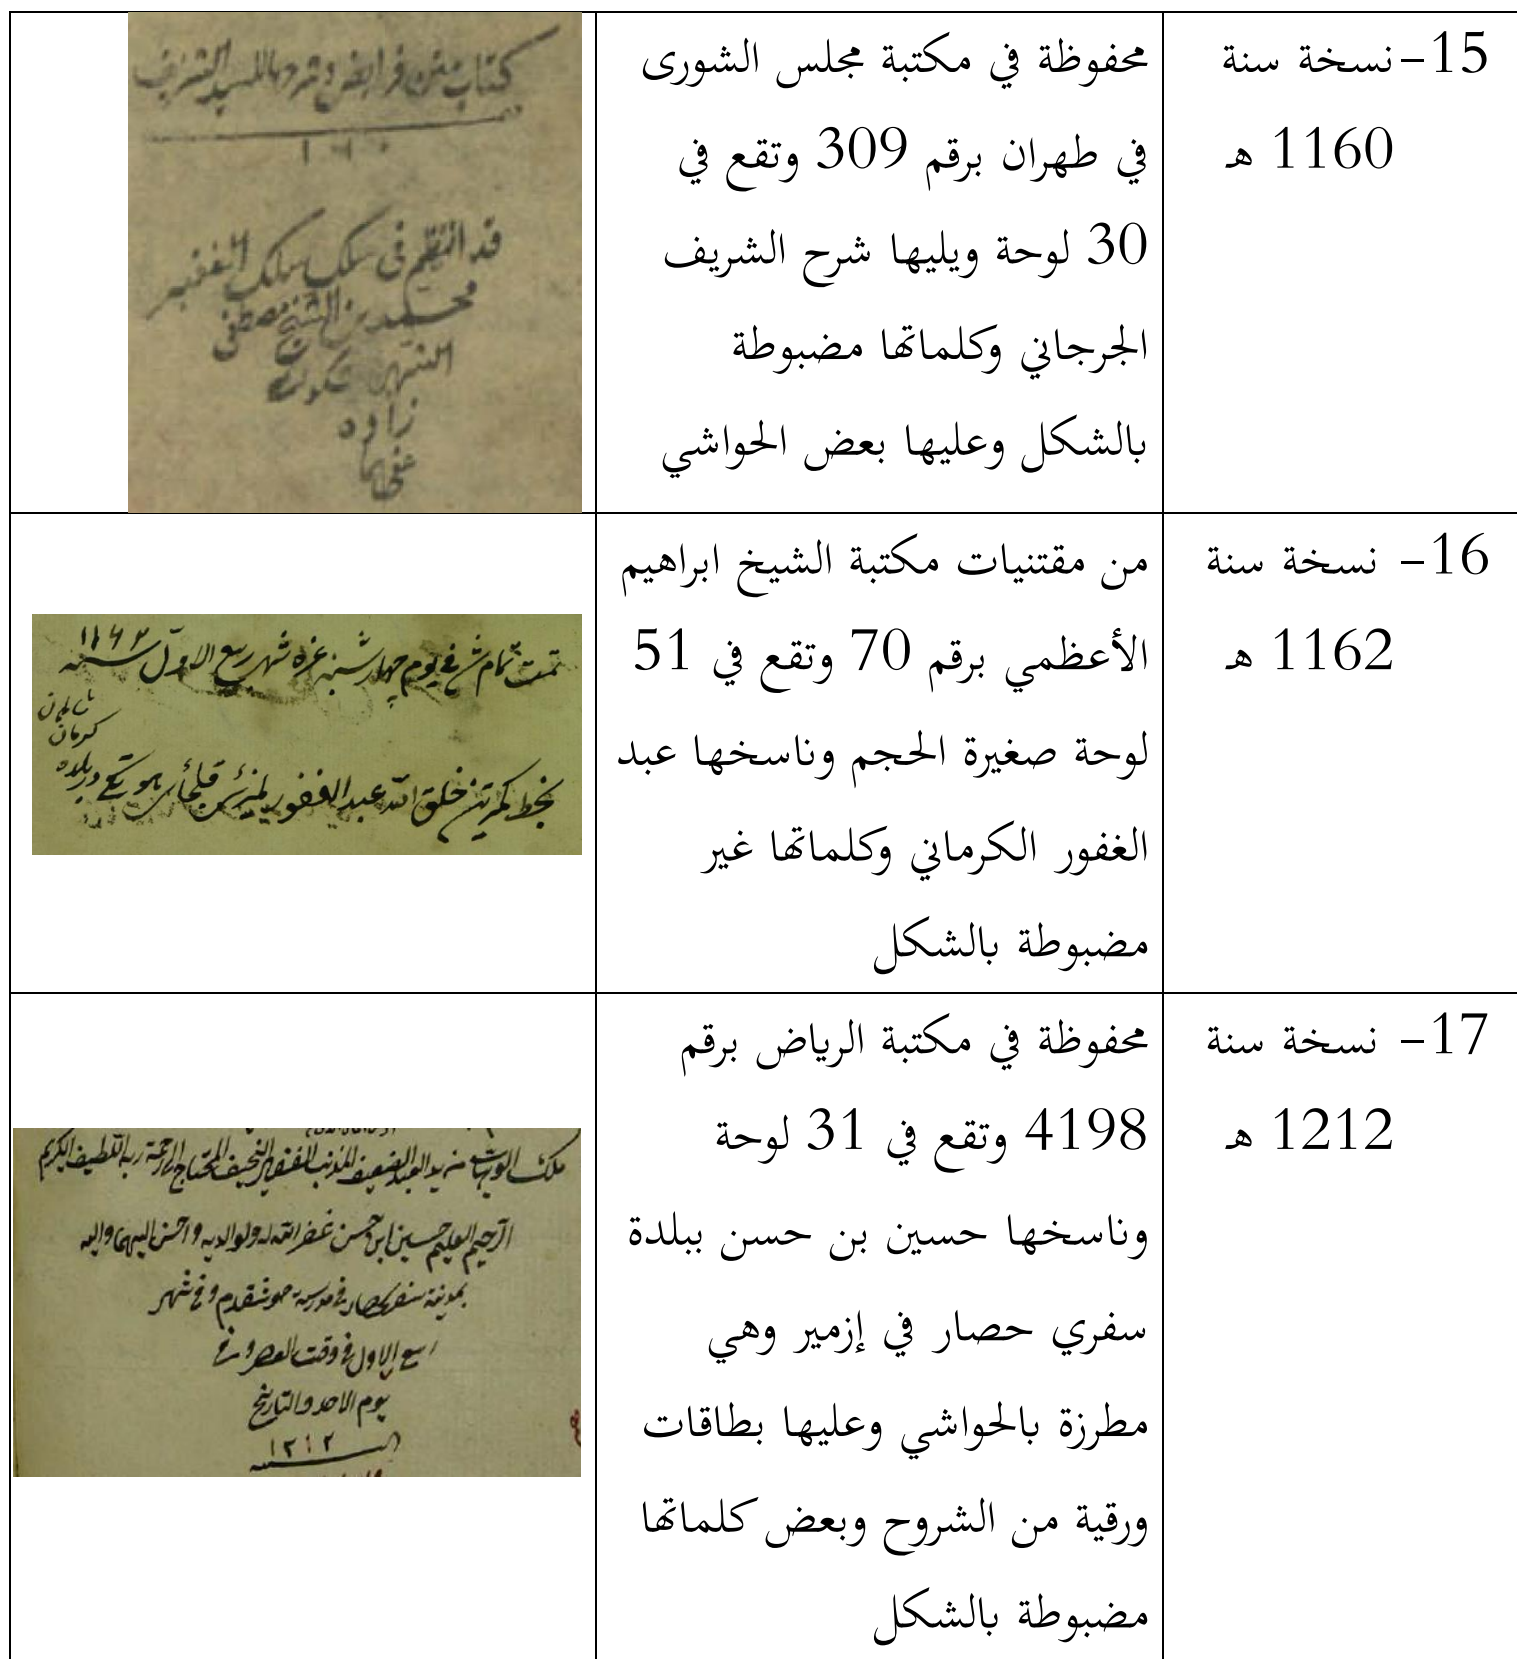 15-نسخة سنة
1160 هـ
محفوظة في مكتبة مجلس الشورى
في طهران برقم 309 وتقع في
30 لوحة ويليها شرح الشريف
الجرجاني وكلماتها مضبوطة
بالشكل وعليها بعض الحواشي
كتاب متن فرايض وشرحها للسيد الشريف
قد انتظم في سلك ملك الفقير
محمد بن الشيخ مصطفى
الشهير
زاده
عفي عنهما
16- نسخة سنة
1162 هـ
من مقتنيات مكتبة الشيخ ابراهيم
الأعظمي برقم 70 وتقع في 51
لوحة صغيرة الحجم وناسخها عبد
الغفور الكرماني وكلماتها غير
مضبوطة بالشكل
تمت تمام شد في يوم چهارشنبه غره شهر ربيع الاول سنه ١١٦٢
كرمان
بخط كمترين خلق الله عبد الغفور
17- نسخة سنة
1212 هـ
محفوظة في مكتبة الرياض برقم
4198 وتقع في 31 لوحة
وناسخها حسين بن حسن ببلدة
سفري حصار في إزمير وهي
مطرزة بالحواشي وعليها بطاقات
ورقية من الشروح وبعض كلماتها
مضبوطة بالشكل
من يد العبد الضعيف المذنب الفقير النحيف المحتاج الى رحمة ربه اللطيف الكريم
الرحيم العليم حسين ابن حسن غفر الله له ولوالديه واحسن اليهما واليه
بمدينة سفريحصار في مدرسة وفي شهر
ربيع الاول في وقت العصر وفي
يوم الاحد والتاريخ
سنه ١٢١٢